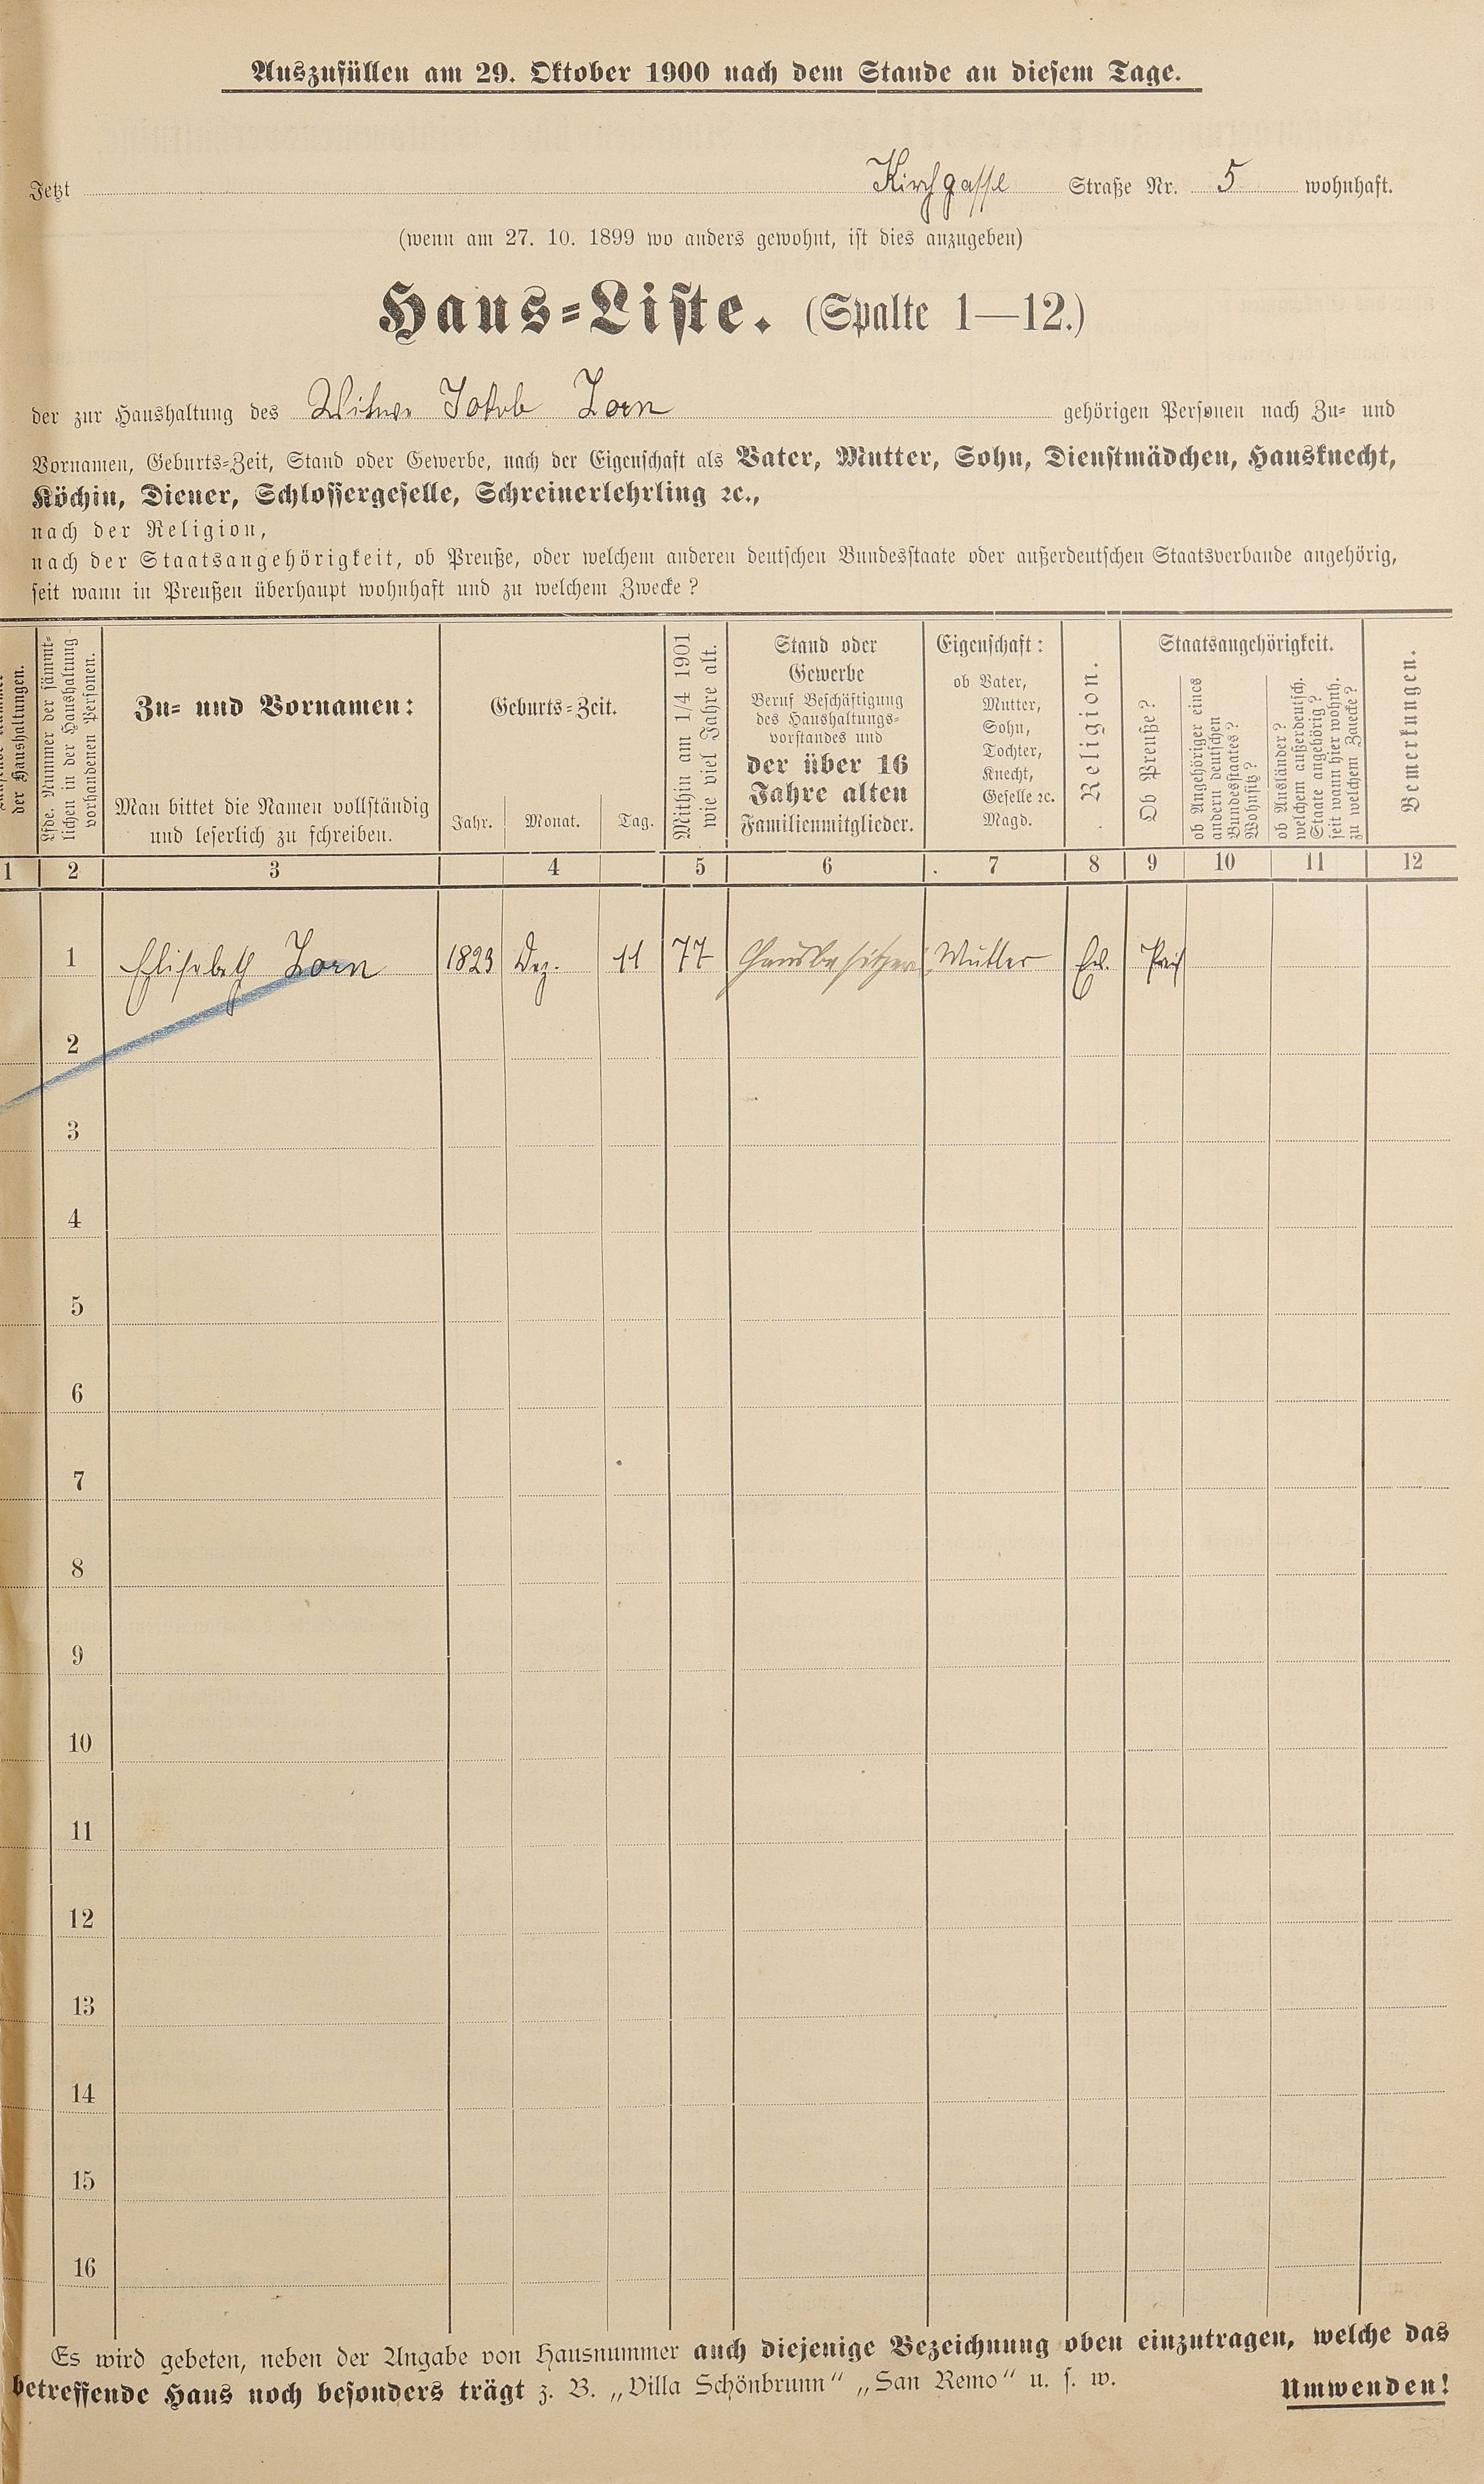 Auszufüllen am 29. Oktober 1900 nach dem Stande an diesem Tage.
Jetzt Kirchgasse Straße Nr. 5 wohnhaft.
(wenn am 27. 10. 1899 wo anders gewohnt, ist dies anzugeben)
Haus-Liste. (Spalte 1—12.)
der zur Haushaltung des Witwe Jakob Zorn gehörigen Personen nach Zu- und
Vornamen, Geburts-Zeit, Stand oder Gewerbe, nach der Eigenschaft als Vater, Mutter, Sohn, Dienstmädchen, Hausknecht,
Köchin, Diener, Schlossergeselle, Schreinerlehrling ꝛc.,
nach der Religion,
nach der Staatsangehörigkeit, ob Preuße, oder welchem anderen deutschen Bundesstaate oder außerdeutschen Staatsverbande angehörig,
seit wann in Preußen überhaupt wohnhaft und zu welchem Zwecke?
der Haushaltungen.
Lfde. Nummer der sämmt-
lichen in der Haushaltung
vorhandenen Personen.
Zu- und Vornamen:
Man bittet die Namen vollständig
und leserlich zu schreiben.
Geburts-Zeit.
Jahr. Monat. Tag.
Mithin am 1/4 1901
wie viel Jahre alt.
Stand oder
Gewerbe
Beruf Beschäftigung
des Haushaltungs-
vorstandes und
der über 16
Jahre alten
Familienmitglieder.
Eigenschaft:
ob Vater,
Mutter,
Sohn,
Tochter,
Knecht,
Geselle ꝛc.
Magd.
Religion.
Staatsangehörigkeit.
Ob Preuße?
ob Angehöriger eines
andern deutschen
Bundesstaates?
Wohnsitz?
ob Ausländer?
welchem außerdeutsch.
Staate angehörig?
seit wann hier wohnh.
zu welchem Zwecke?
Bemerkungen.
1 2 3 4 5 6 7 8 9 10 11 12
1 Elisabeth Zorn 1823 Dez. 11 77 Hausbesitzerin Mutter Ev. Preuß
2
3
4
5
6
7
8
9
10
11
12
13
14
15
16
Es wird gebeten, neben der Angabe von Hausnummer auch diejenige Bezeichnung oben einzutragen, welche das
betreffende Haus noch besonders trägt z. B. „Villa Schönbrunn" „San Remo" u. s. w. Umwenden!